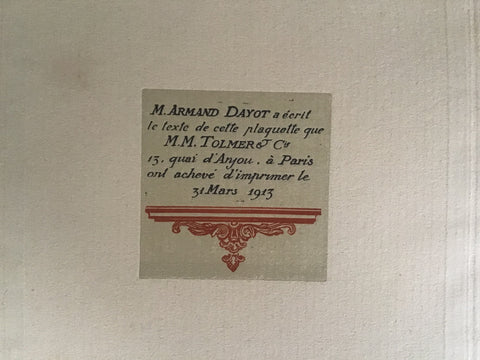 M. ARMAND DAYOT a écrit
le texte de cette plaquette que
M.M. TOLMER & Cie
13, quai d'Anjou, à Paris
ont achevé d'imprimer le
31 Mars 1913